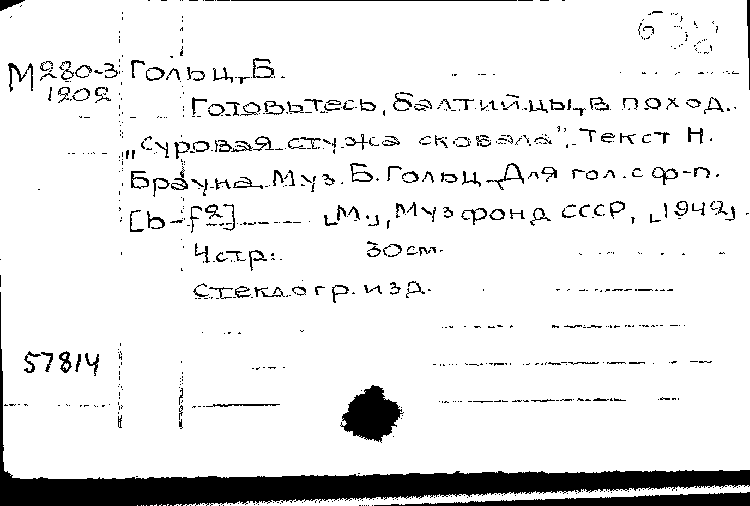 638
М280-3 Гольц, Б.
1202
Готовьтесь, балтийцы, в поход.
„Суровая стужа сковала”. Текст Н.
Брауна. Муз. Б. Гольц. Для гол. с ф-п.
[b-f2] [М.], Музфонд СССР, [1942].
4 стр. 30 см.
Стеклогр. изд.
57814